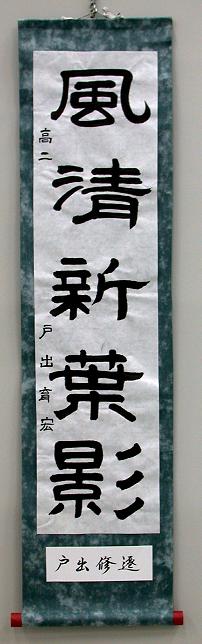 風清新葉影
高二 戸出育宏
戸出修遥